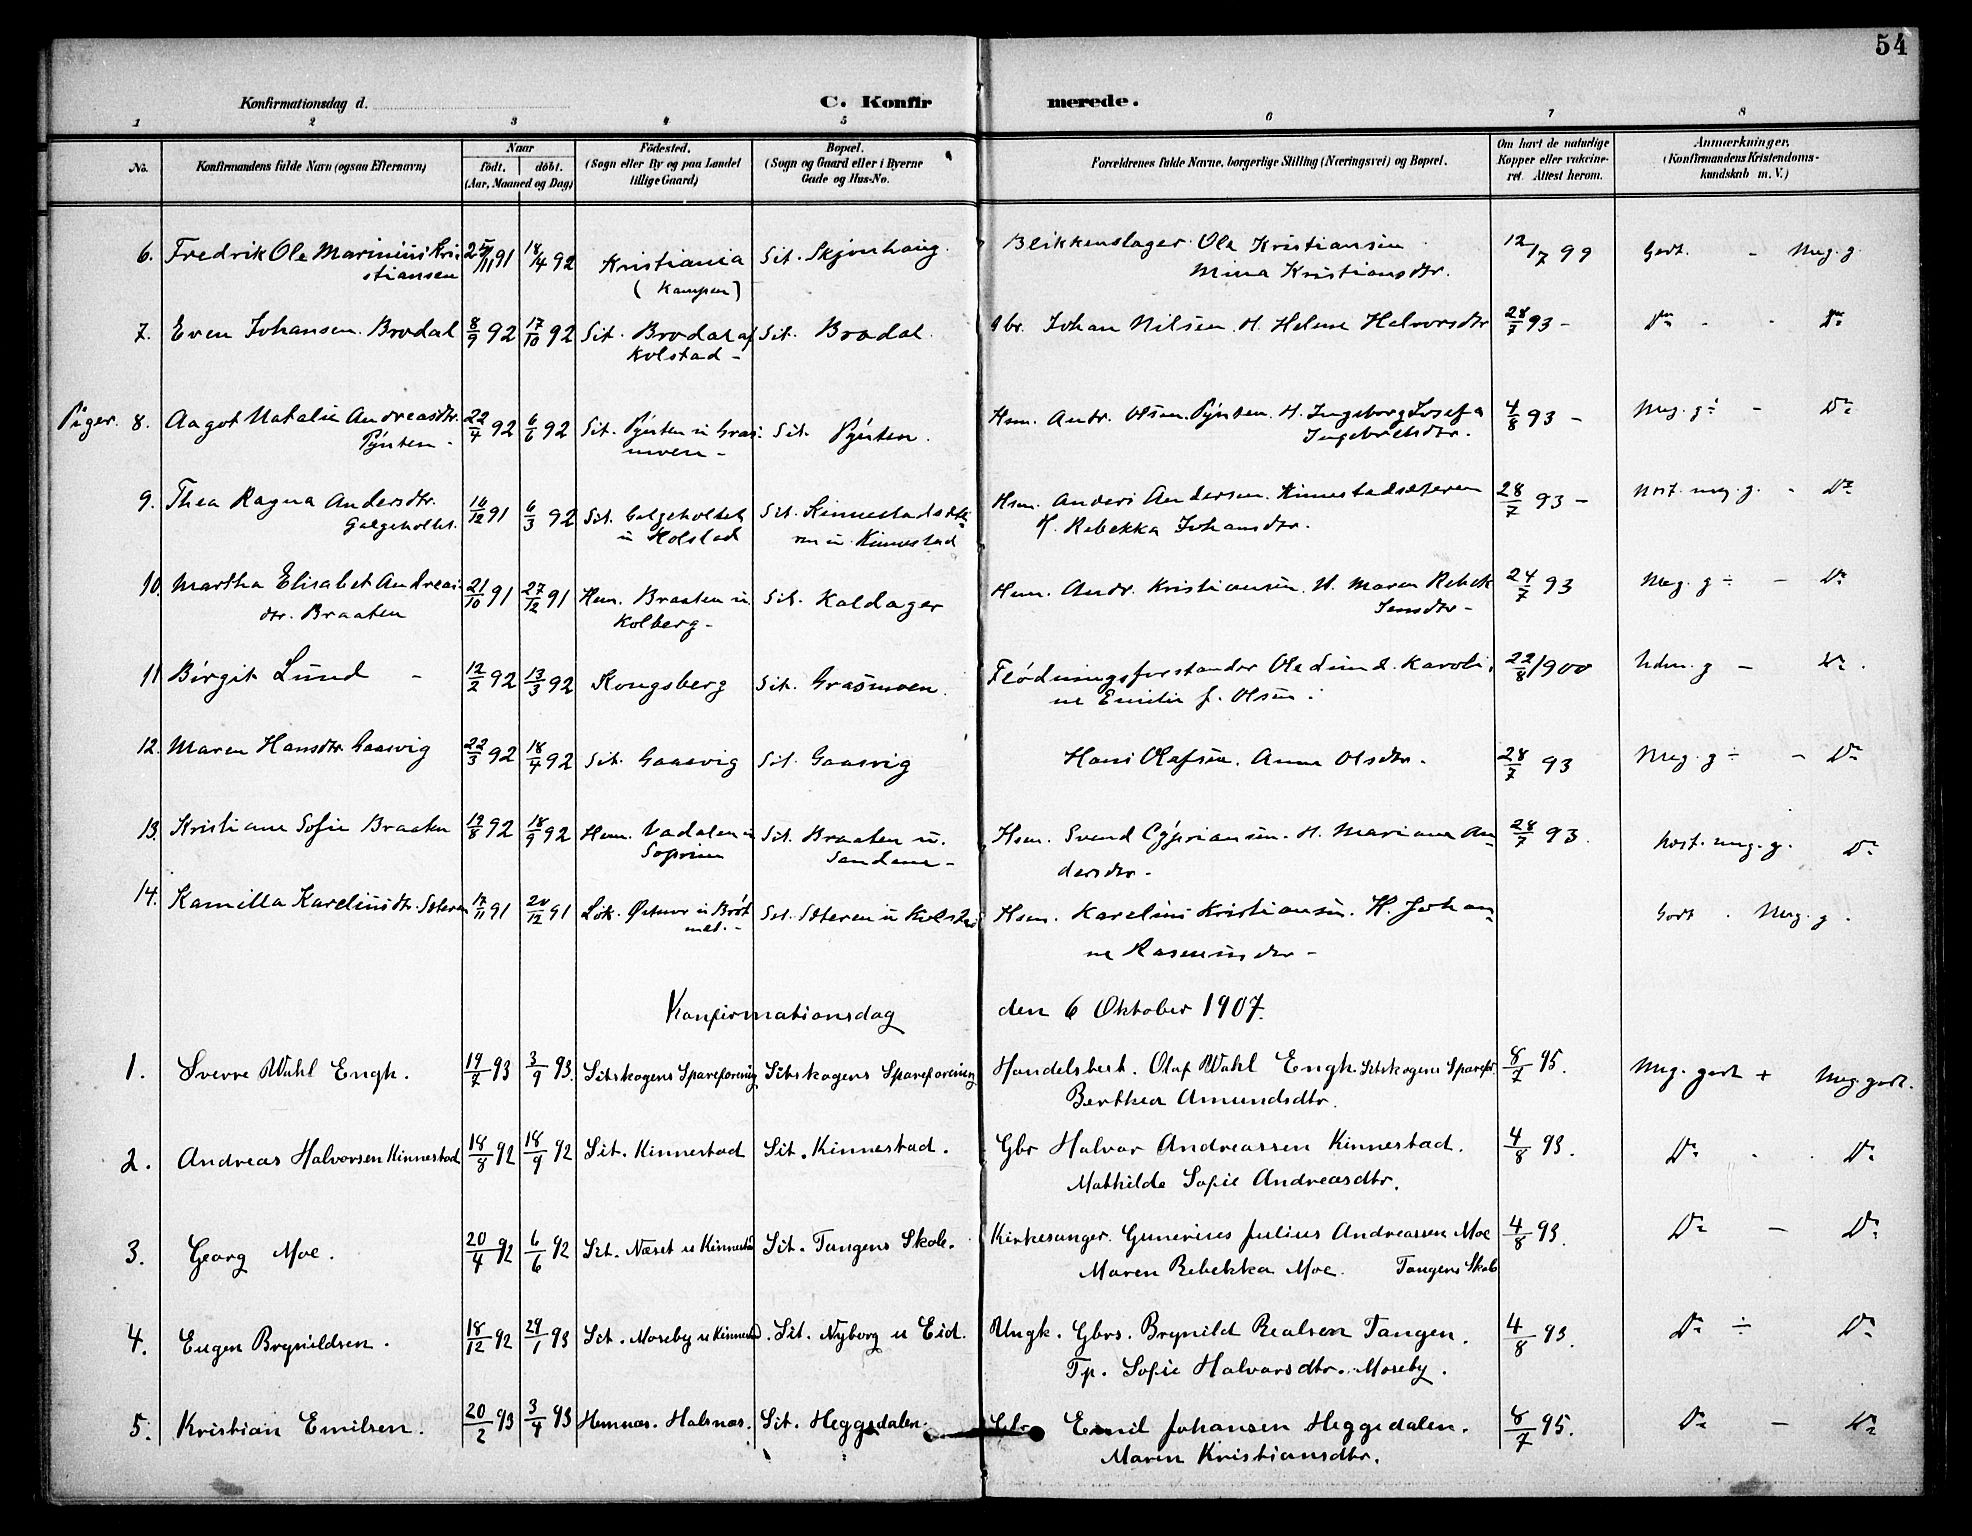 54
Konfirmationsdag d.
C. Konfir merede.
1 2 3 4 5 6 7 8
No. Konfirmandens fulde Navn (ogsaa Efternavn) Naar født. døbt. (Aar, Maaned og Dag) Fødested. (Sogn eller By og paa Landet tillige Gaard) Bopæl. (Sogn og Gaard eller i Byerne Gade og Hus-No. Forældrenes fulde Navne, borgerlige Stilling (Næringsvei) og Bopæl. Om havt de naturlige Kopper eller vakcineret. Attest herom. Anmærkninger. (Konfirmandens Kristendomskundskab m. V.)
6. Fredrik Ole Marinius Kri- 25/11 91 18/4 92 Kristiania Sit. Skjønhaug. Blikkenslager Ole Kristiansen 12/7 99 Godt. - Mug. g.
stiansen (Kampen) Mina Kristiansdtr.
7. Even Johansen Brodal 8/9 92 17/10 92 Sit. Brodal af Sit. Brodal. Gbr. Johan Nilsen. H. Helene Halvorsdtr 28/7 93 - Do - - Do
Kolstad -
Piger. 8. Aagot Natalie Andreasdtr. 22/4 92 6/6 92 Sit. Pynten u Gras- Sit. Pynten. Hsm. Andr. Olsen Pynten. H. Ingeborg Josefa 4/8 93 - Mug. g ÷ - Do
Pynten - moen - Ingebretsdtr.
9. Thea Ragna Andersdtr. 16/12 91 6/3 92 Sit. Galgeholtet Sit. Kinnestads Hsm. Anders Andersen. Kinnestadsæteren 28/7 93 - Nost. mug. g. - Do
Galgeholtet. u Kolstad u. Kinnestad H. Rebekka Johansdtr.
10. Martha Elisabet Andreas- 21/10 91 27/12 91 Hem. Braaten u Sit. Kaldager Hsm. Andr. Kristiansen. H. Maren Rebek 24/7 93 Mug. g ÷ - Do
dtr. Braaten Kolberg - Jensdtr -
11 Birgit Lund - 12/2 92 13/3 92 Kongsberg Sit. Grasmoen. Fløtningsforstander Ole Lund &. Karoli- 22/8 1900 Udm. g - Do.
ne Emilie f. Olsen.
12. Maren Hansdtr. Gaasvig 22/3 92 18/4 92 Sit. Gaasvig Sit. Gaasvig Hans Olafsen. Anne Olsdtr. 28/7 93 Mug. g ÷ - Do
13. Kristiane Sofie Braaten 19/8 92 18/9 92 Hem. Vadalen u Sit. Braaten u. Hsm. Svend Cypriansen. H. Mariane An- 28/7 93. Nost. mug. g. Do
Soprim Sandene - dersdtr -
14. Kamilla Kareliusdtr. Sæteren 17/11 91 20/12 91 Løk. Østmor u Brøt Sit. Sæteren u Kolstad Hsm. Karelius Kristiansen. H. Johan- Godt . Mug. g.
met. - ne Rasmusdtr -
Konfirmationsdag den 6 Oktober 1907.
1. Sverre Wahl Engh. 19/7 93 3/9 93. Sitskogens Spareforening Sitskogens Spareforening Handelsbest. Olaf Wahl Engh Sitskogens Sparefor. 8/7 95. Mug. godt + Mug. godt.
Berthea Amundsdtr.
2. Andreas Halvorsen Kinnestad 18/8 92 18/9 92 Sit. Kinnestad Sit. Kinnestad. Gbr Halvor Andreassen Kinnestad. 4/8 93. Do . . Do
Mathilde Sofie Andreasdtr.
3. Georg Moe. 20/4 92 6/6 92 Sit. Næset u Kinnestad Sit. Tangens Skole. Kirkesanger. Gunerius Julius Andreassen Moe 4/8 93. Do - Do
Maren Rebekka Moe. Tangens Skole
4. Eugen Brynildsen. 18/12 92 29/1 93 Sit. Moseby u Kinnestad. Sit. Nyborg u Eid. Ungk. Gbrs. Brynild Realsen Tangen. 4/8 93. Do ÷ Do
Tp. Sofie Halvorsdtr. Moseby.
5. Kristian Emilsen. 20/2 93 3/4 93 Hemnæs. Halsnæs. Sit. Heggsdalen. Gbr Emil Johansen Heggedalen. 8/7 95. Do - Do
Maren Kristiansdtr.